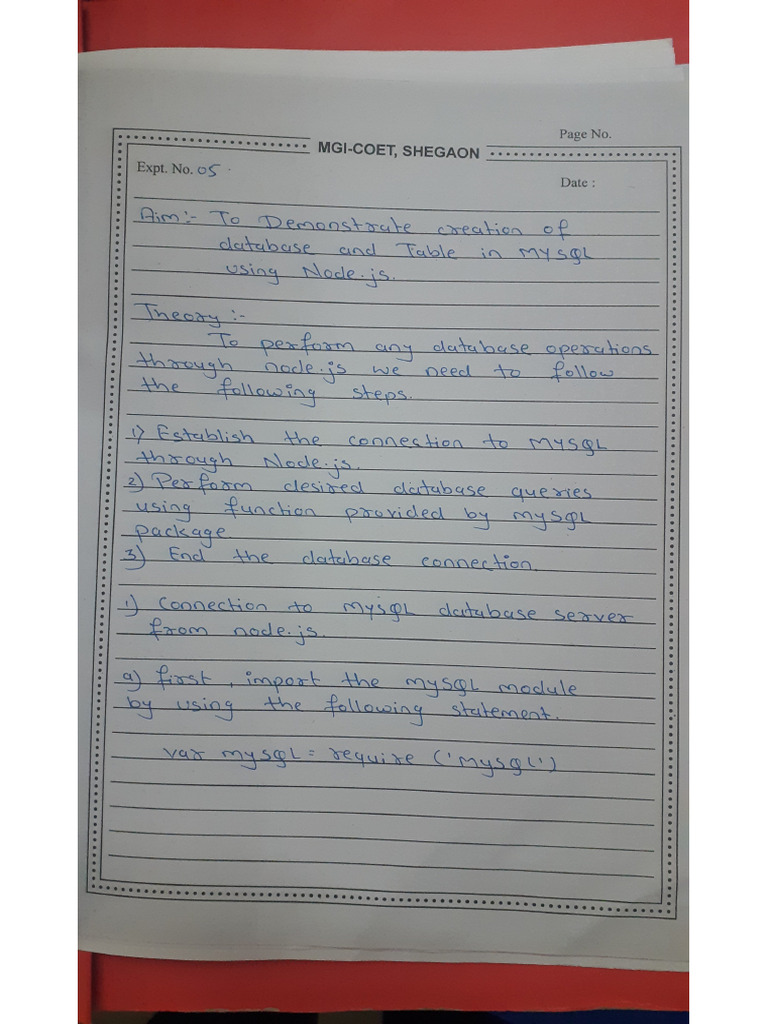 Page No.
MGI-COET, SHEGAON
Expt. No. 05.
Date :
Aim:- To Demonstrate creation of
database and Table in MySQL
using Node.js.
Theory :-
To perform any database operations
through node.js we need to follow
the following steps.
1) Establish the connection to MYSQL
through Node.js.
2) Perform desired database queries
using function provided by MySQL
package
3) End the database connection.
1) Connection to MySQL database server
from node.js.
a) first, import the mysQL module
by using the following statement.
var mysQL = require ('MySQL')